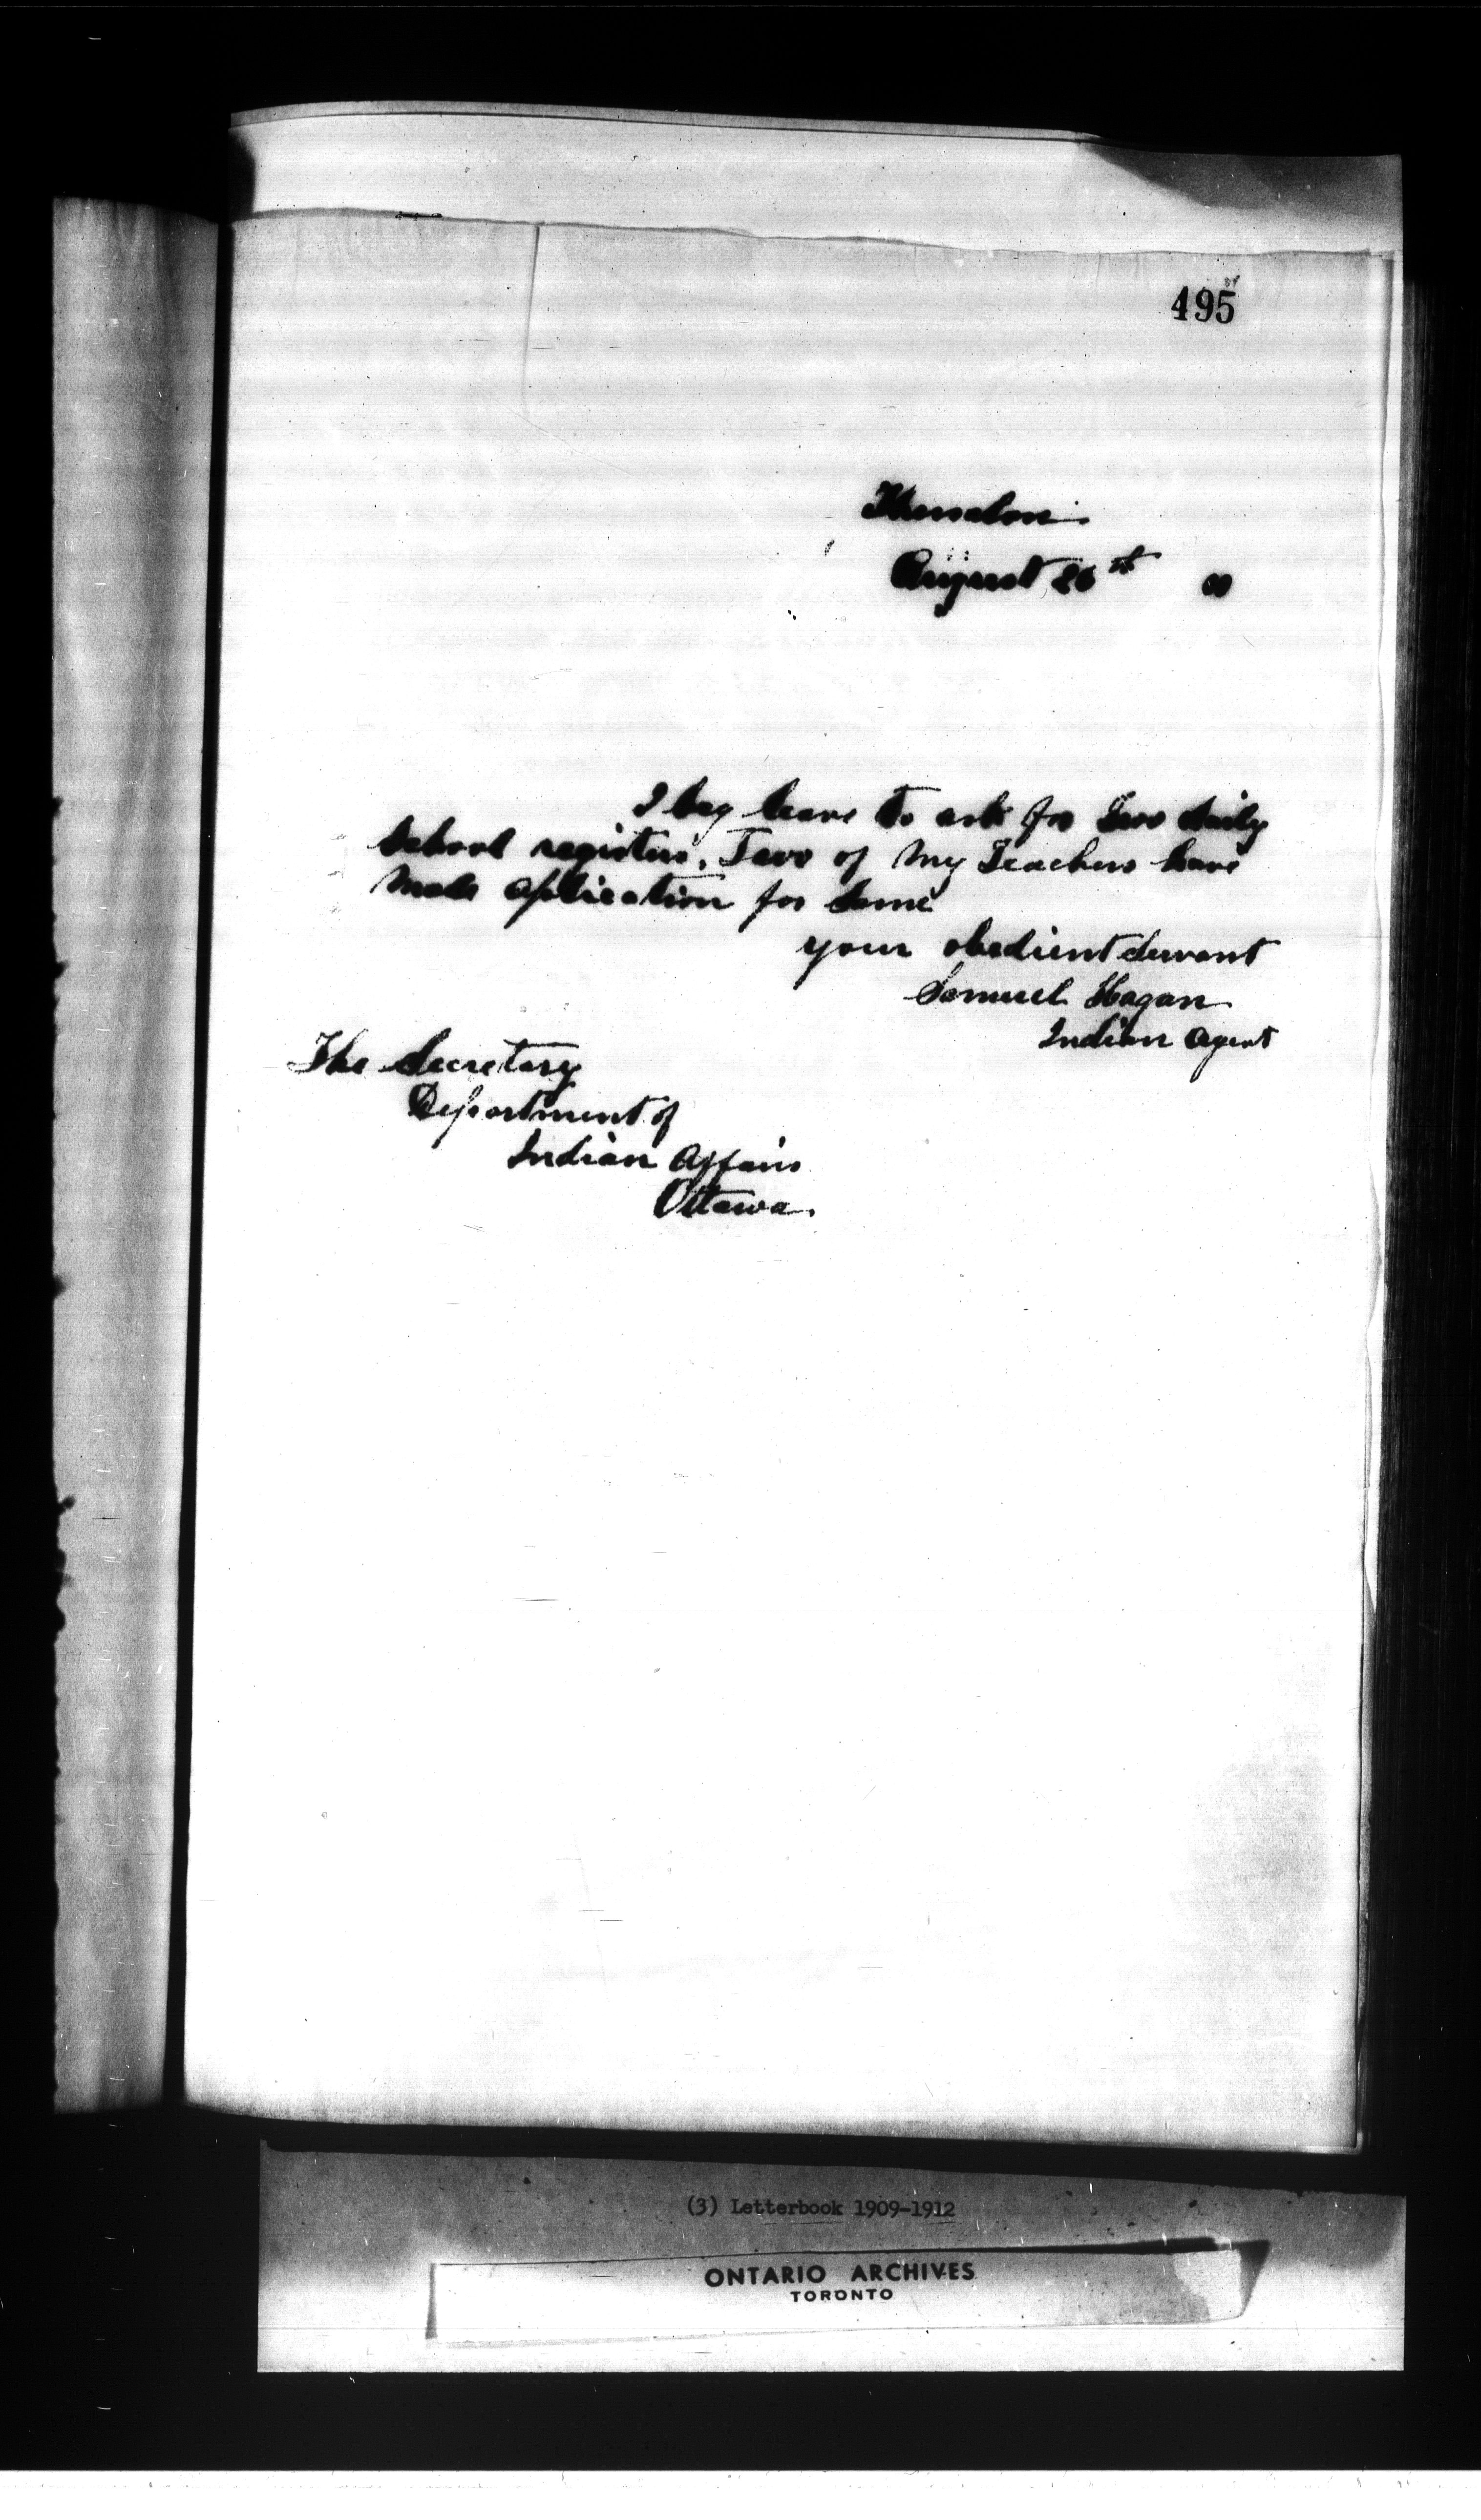 495
Thessalon
August 26th
I beg leave to ask for Two daily
School registers. Two of My Teachers have
Made application for Same
your obedient Servant
Samuel Hagan
Indian Agent
The Secretary
Department of
Indian Affairs
Ottawa.
(3) Letterbook 1909-1912
ONTARIO ARCHIVES
TORONTO